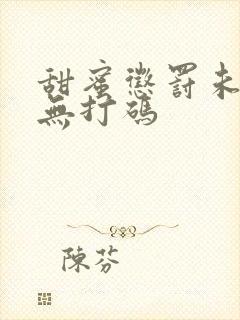 甜蜜懲罰未
無打碼
陳芬